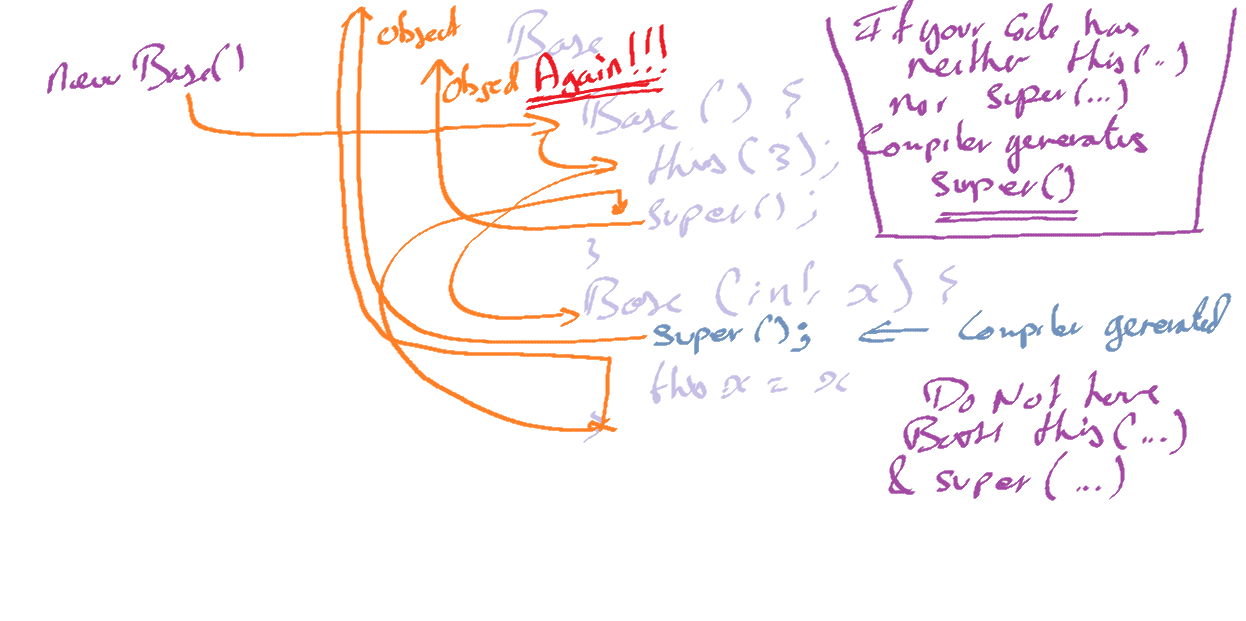 new Base()
Object
Base
Object Again!!!
Base () {
this(3);
super();
}
Base (int x) {
super(); ← Compiler generated
this x = x
}
If your code has
neither this(..)
nor super(...)
Compiler generates
super()
Do Not have
Both this(...)
& super(...)